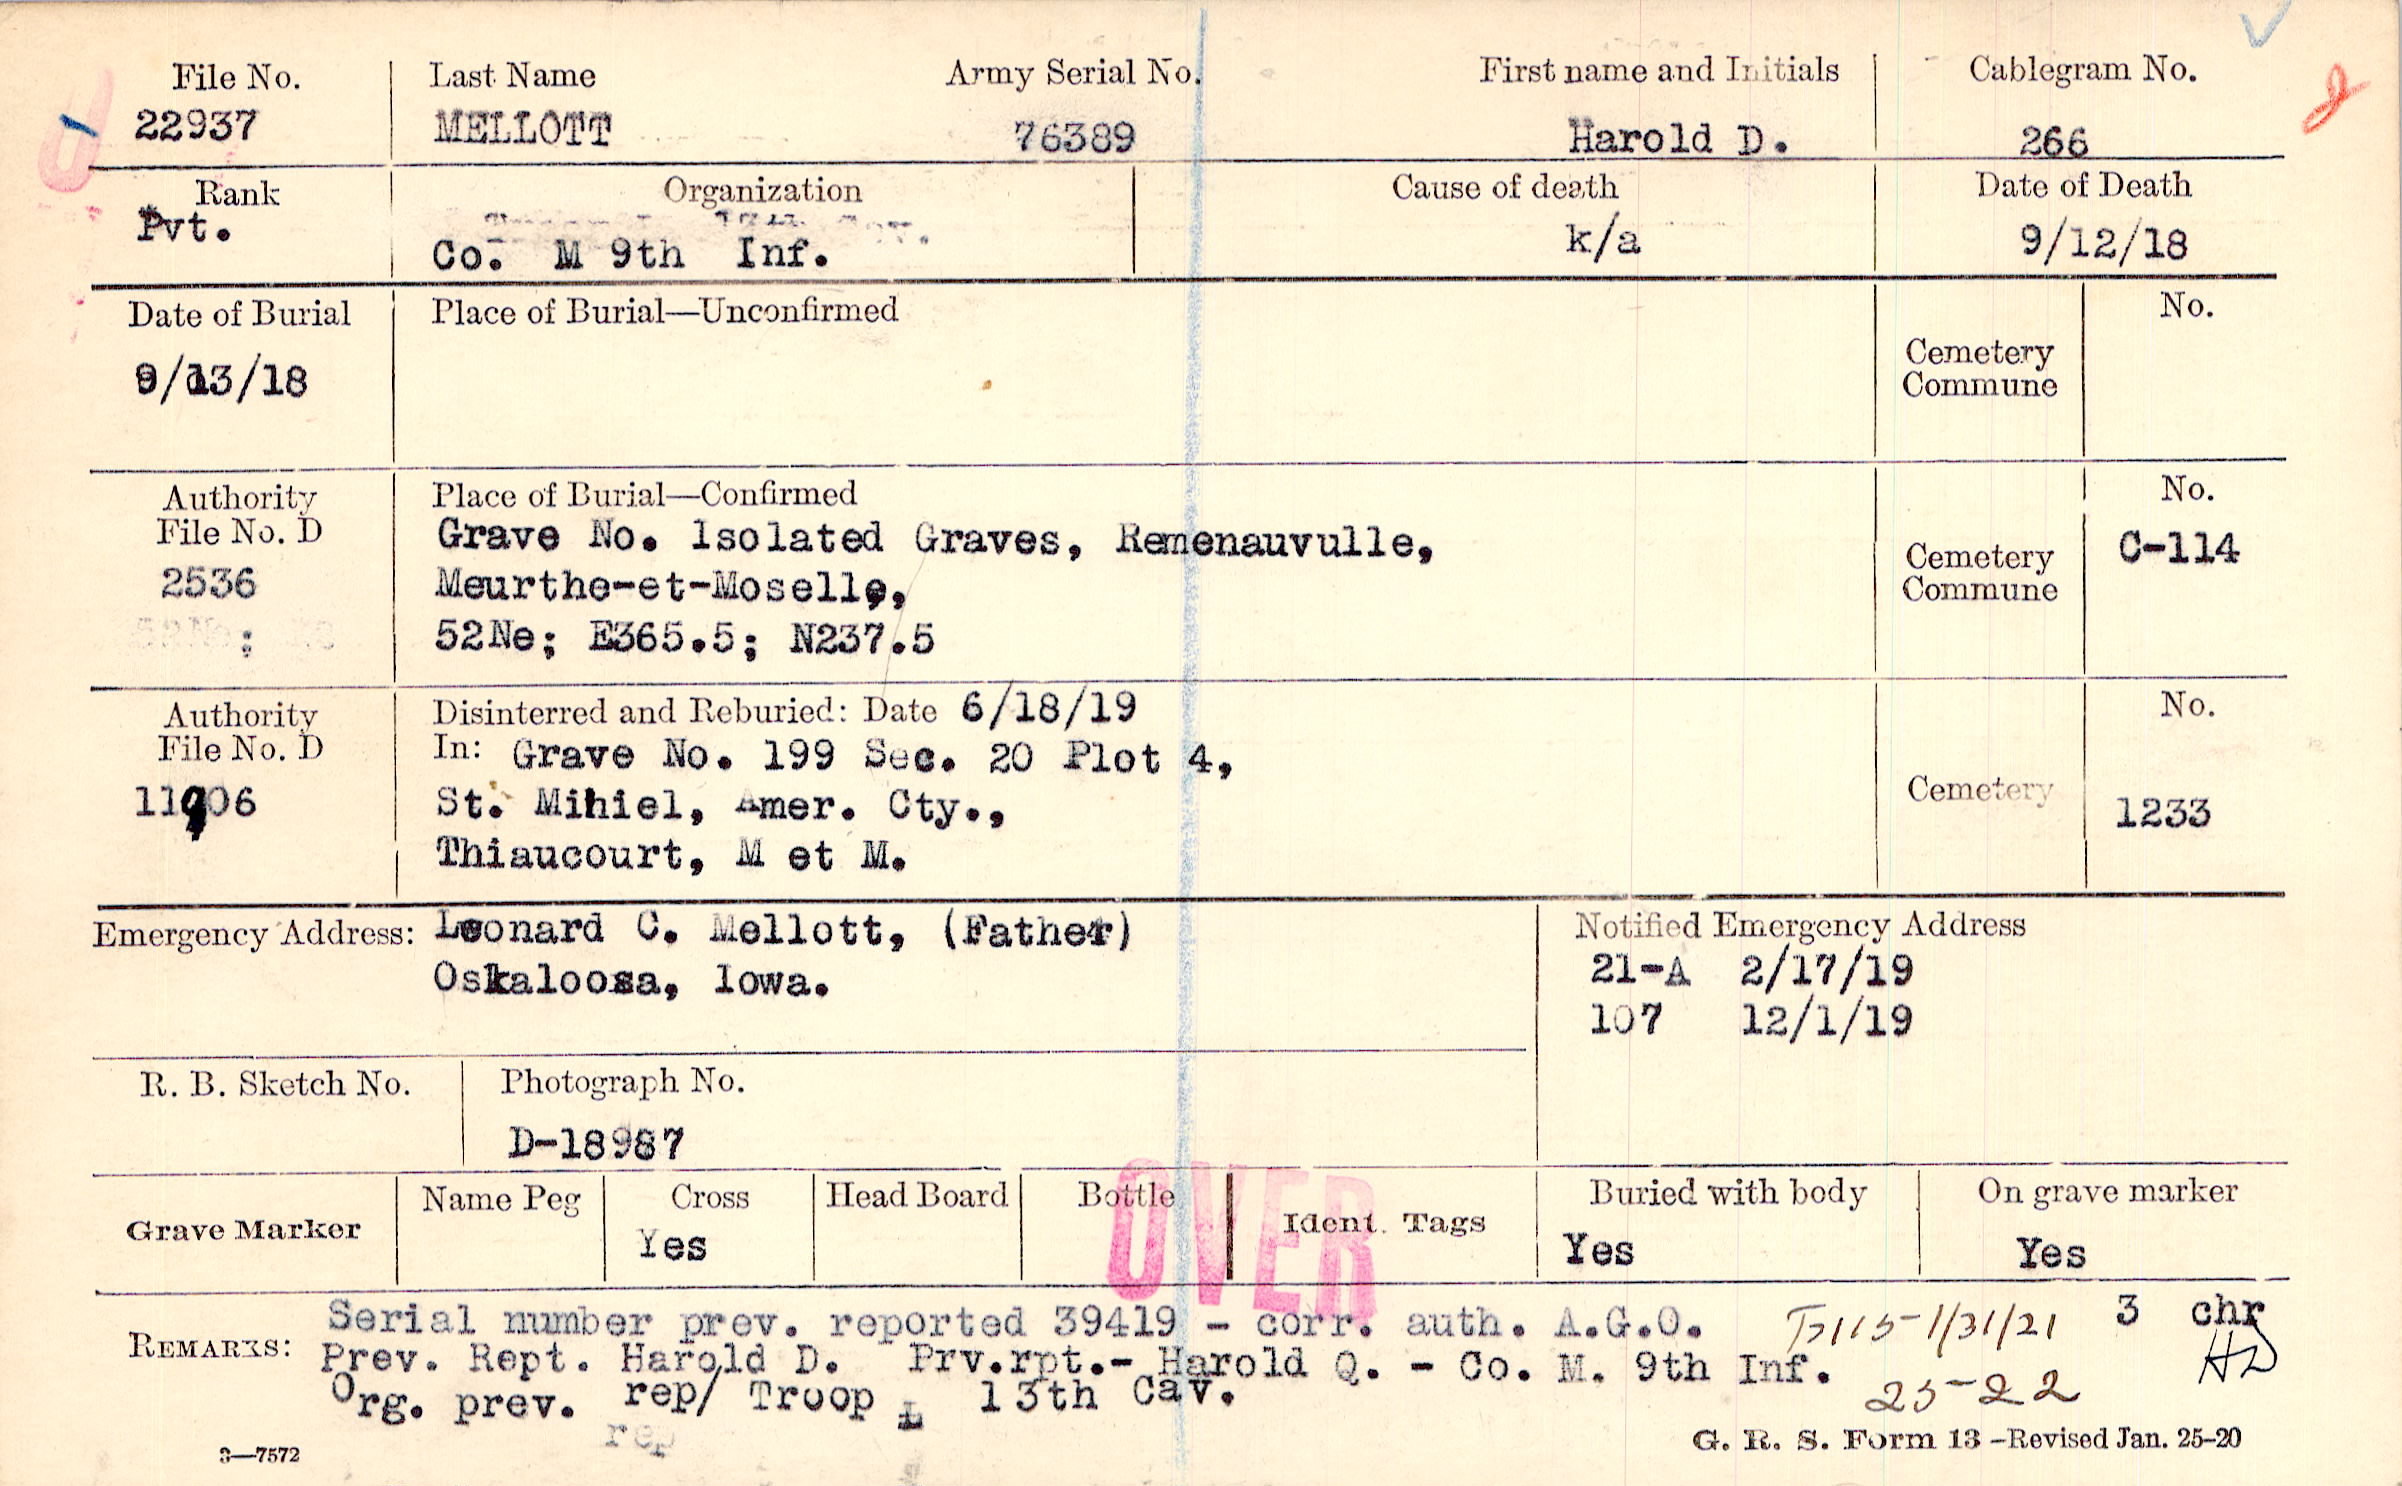 File No. Last Name Army Serial No. First name and Initials Cablegram No.
22937 MELLOTT 76389 Harold D. 266
Rank Organization Cause of death Date of Death
Pvt. Co. M 9th Inf. k/a 9/12/18
Date of Burial Place of Burial—Unconfirmed No.
9/13/18 Cemetery
Commune
Authority Place of Burial—Confirmed No.
File No. D Grave No. Isolated Graves, Remenauvulle, Cemetery C-114
2536 Meurthe-et-Moselle, Commune
52Ne; E365.5; N237.5
Authority Disinterred and Reburied: Date 6/18/19 No.
File No. D In: Grave No. 199 Sec. 20 Plot 4,
St. Mihiel, Amer. Cty., Cemetery 1233
Thiaucourt, M et M.
Emergency Address: Leonard C. Mellott, (Father) Notified Emergency Address
Oskaloosa, Iowa. 21-A 2/17/19
107 12/1/19
R. B. Sketch No. Photograph No.
D-18987
OVER
Grave Marker Name Peg Cross Head Board Bottle Ident. Tags Buried with body On grave marker
Yes Yes Yes
REMARKS: Serial number prev. reported 39419 - corr. auth. A.G.O. 1/31/21 3 chr
Prev. Rept. Harold D. Prv.rpt.- Harold Q. - Co. M. 9th Inf. HD
Org. prev. rep/ Troop L 13th Cav. 25-22
rep
3—7572 G. R. S. Form 13—Revised Jan. 25-20